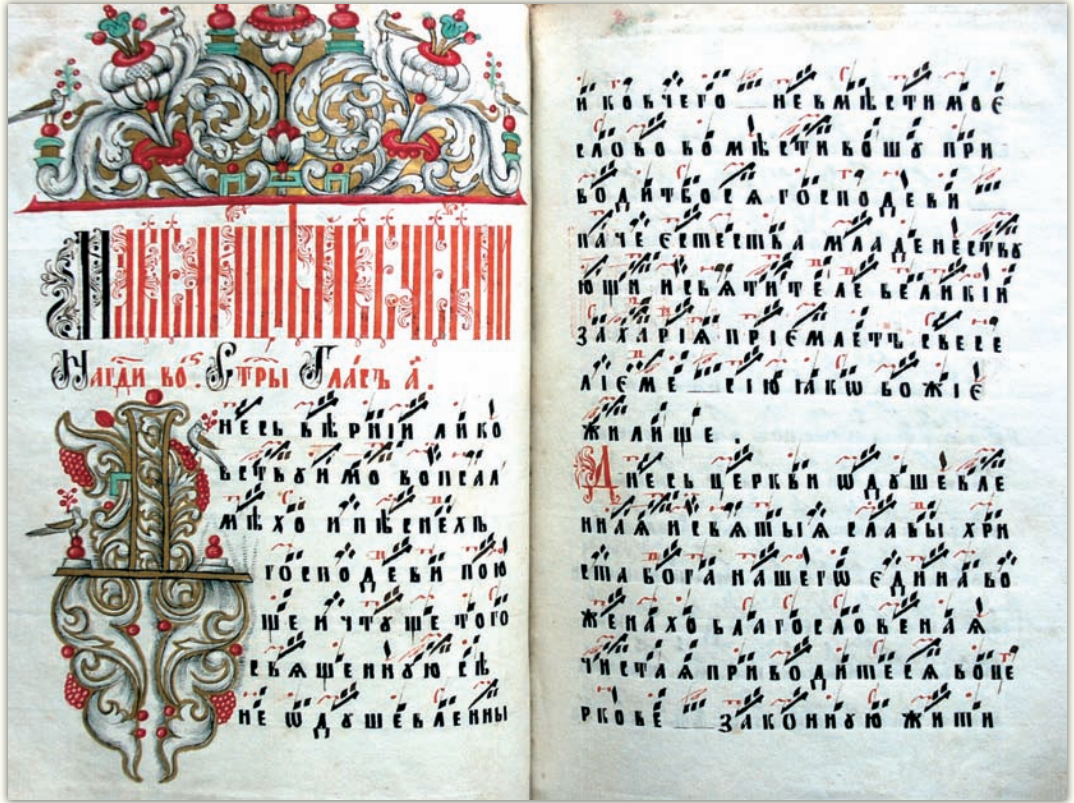 На гд҇и во. ѕ҃. Стры Гласъ а҃.
Днесь вѣрніи лико
вствꙋимо вопсал
мѣхо и пѣснехъ
господеви пою
ще и чтꙋще того
свѧщеннꙋю сѣ
не ѡдꙋшевленны
и ковчего невмѣстимоє
слово вомѣстивошꙋ при
водитбосѧ господеви
паче єстества младенествꙋ
ющи исвѧтителе великіи
захаріѧ пріємлетъ свесе
лієме сію іакѡ божіє
жилище .
Днесь церкви ѡдꙋшевле
ннаѧ исвѧтыѧ славы хри
ста бога нашегѡ єдина во
женахо благословенаѧ
чистаѧ приводитесѧ воце
ркове законнꙋю жити